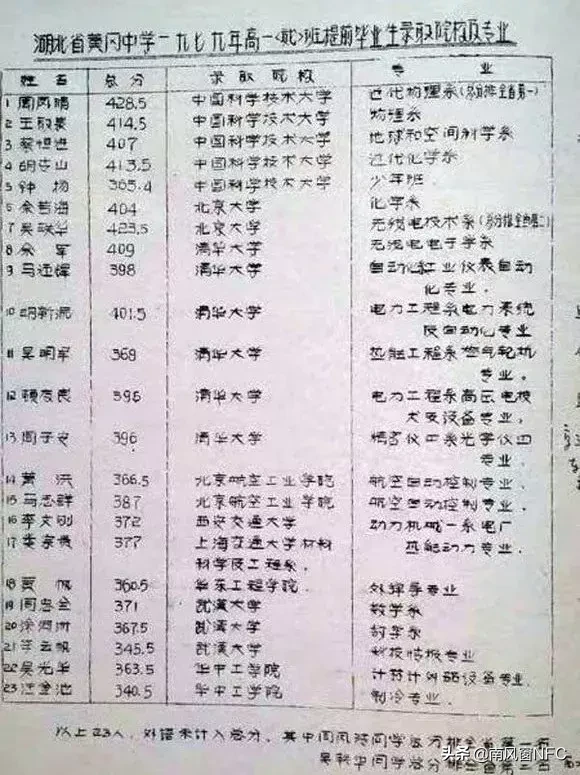 湖北省黄冈中学一九七九年高一(尖)班提前毕业生录取院校及专业
姓名 总分 录取院校 专业
1 周凤鸣 428.5 中国科学技术大学 近代物理系
2 王 414.5 中国科学技术大学 物理系
3 蔡恒进 407 中国科学技术大学 地球和空间科学系
4 胡 山 413.5 中国科学技术大学 近代化学系
5 钟扬 中国科学技术大学 少年班
6 余若海 404 北京大学 化学系
7 吴 华 423.5 北京大学 无线电技术系
8 余军 409 清华大学 无线电电子学系
9 马 辉 398 清华大学 自动化 工业仪表自动
化专业.
10 胡新 401.5 清华大学 电力工程系电力系统
及自动化专业
11 吴明军 368 清华大学 热能工程系燃气轮机
专业.
12 清华大学 电力工程系高压电
术及设备专业,
13 周子安 396 清华大学 精密仪 系光学仪
专业.
14 黄洪 366.5 北京航空工业学院 航空自动控制专业.
15 马志祥 387 北京航空工业学院 航空自动控制专业.
16 李文刚 372 西安交通大学 动力机械一系电厂
17 宗贵 377 上海交通大学材料 热能动力专业.
科学及工程系.
18 黄帆 360.5 华东工程学院. 专业
19 周忠全 371 武汉大学 数学系
20 367.5 武汉大学 数学系
21 李云帆 345.5 武汉大学 科技情报专业
22 吴光华 363.5 华中工学院 计算计外部设备专业.
23 340.5 华中工学院 制冷专业.
以上23人,外语未计入总分,其中周凤鸣同学总分排全省第一名
头条 @南风窗NFC